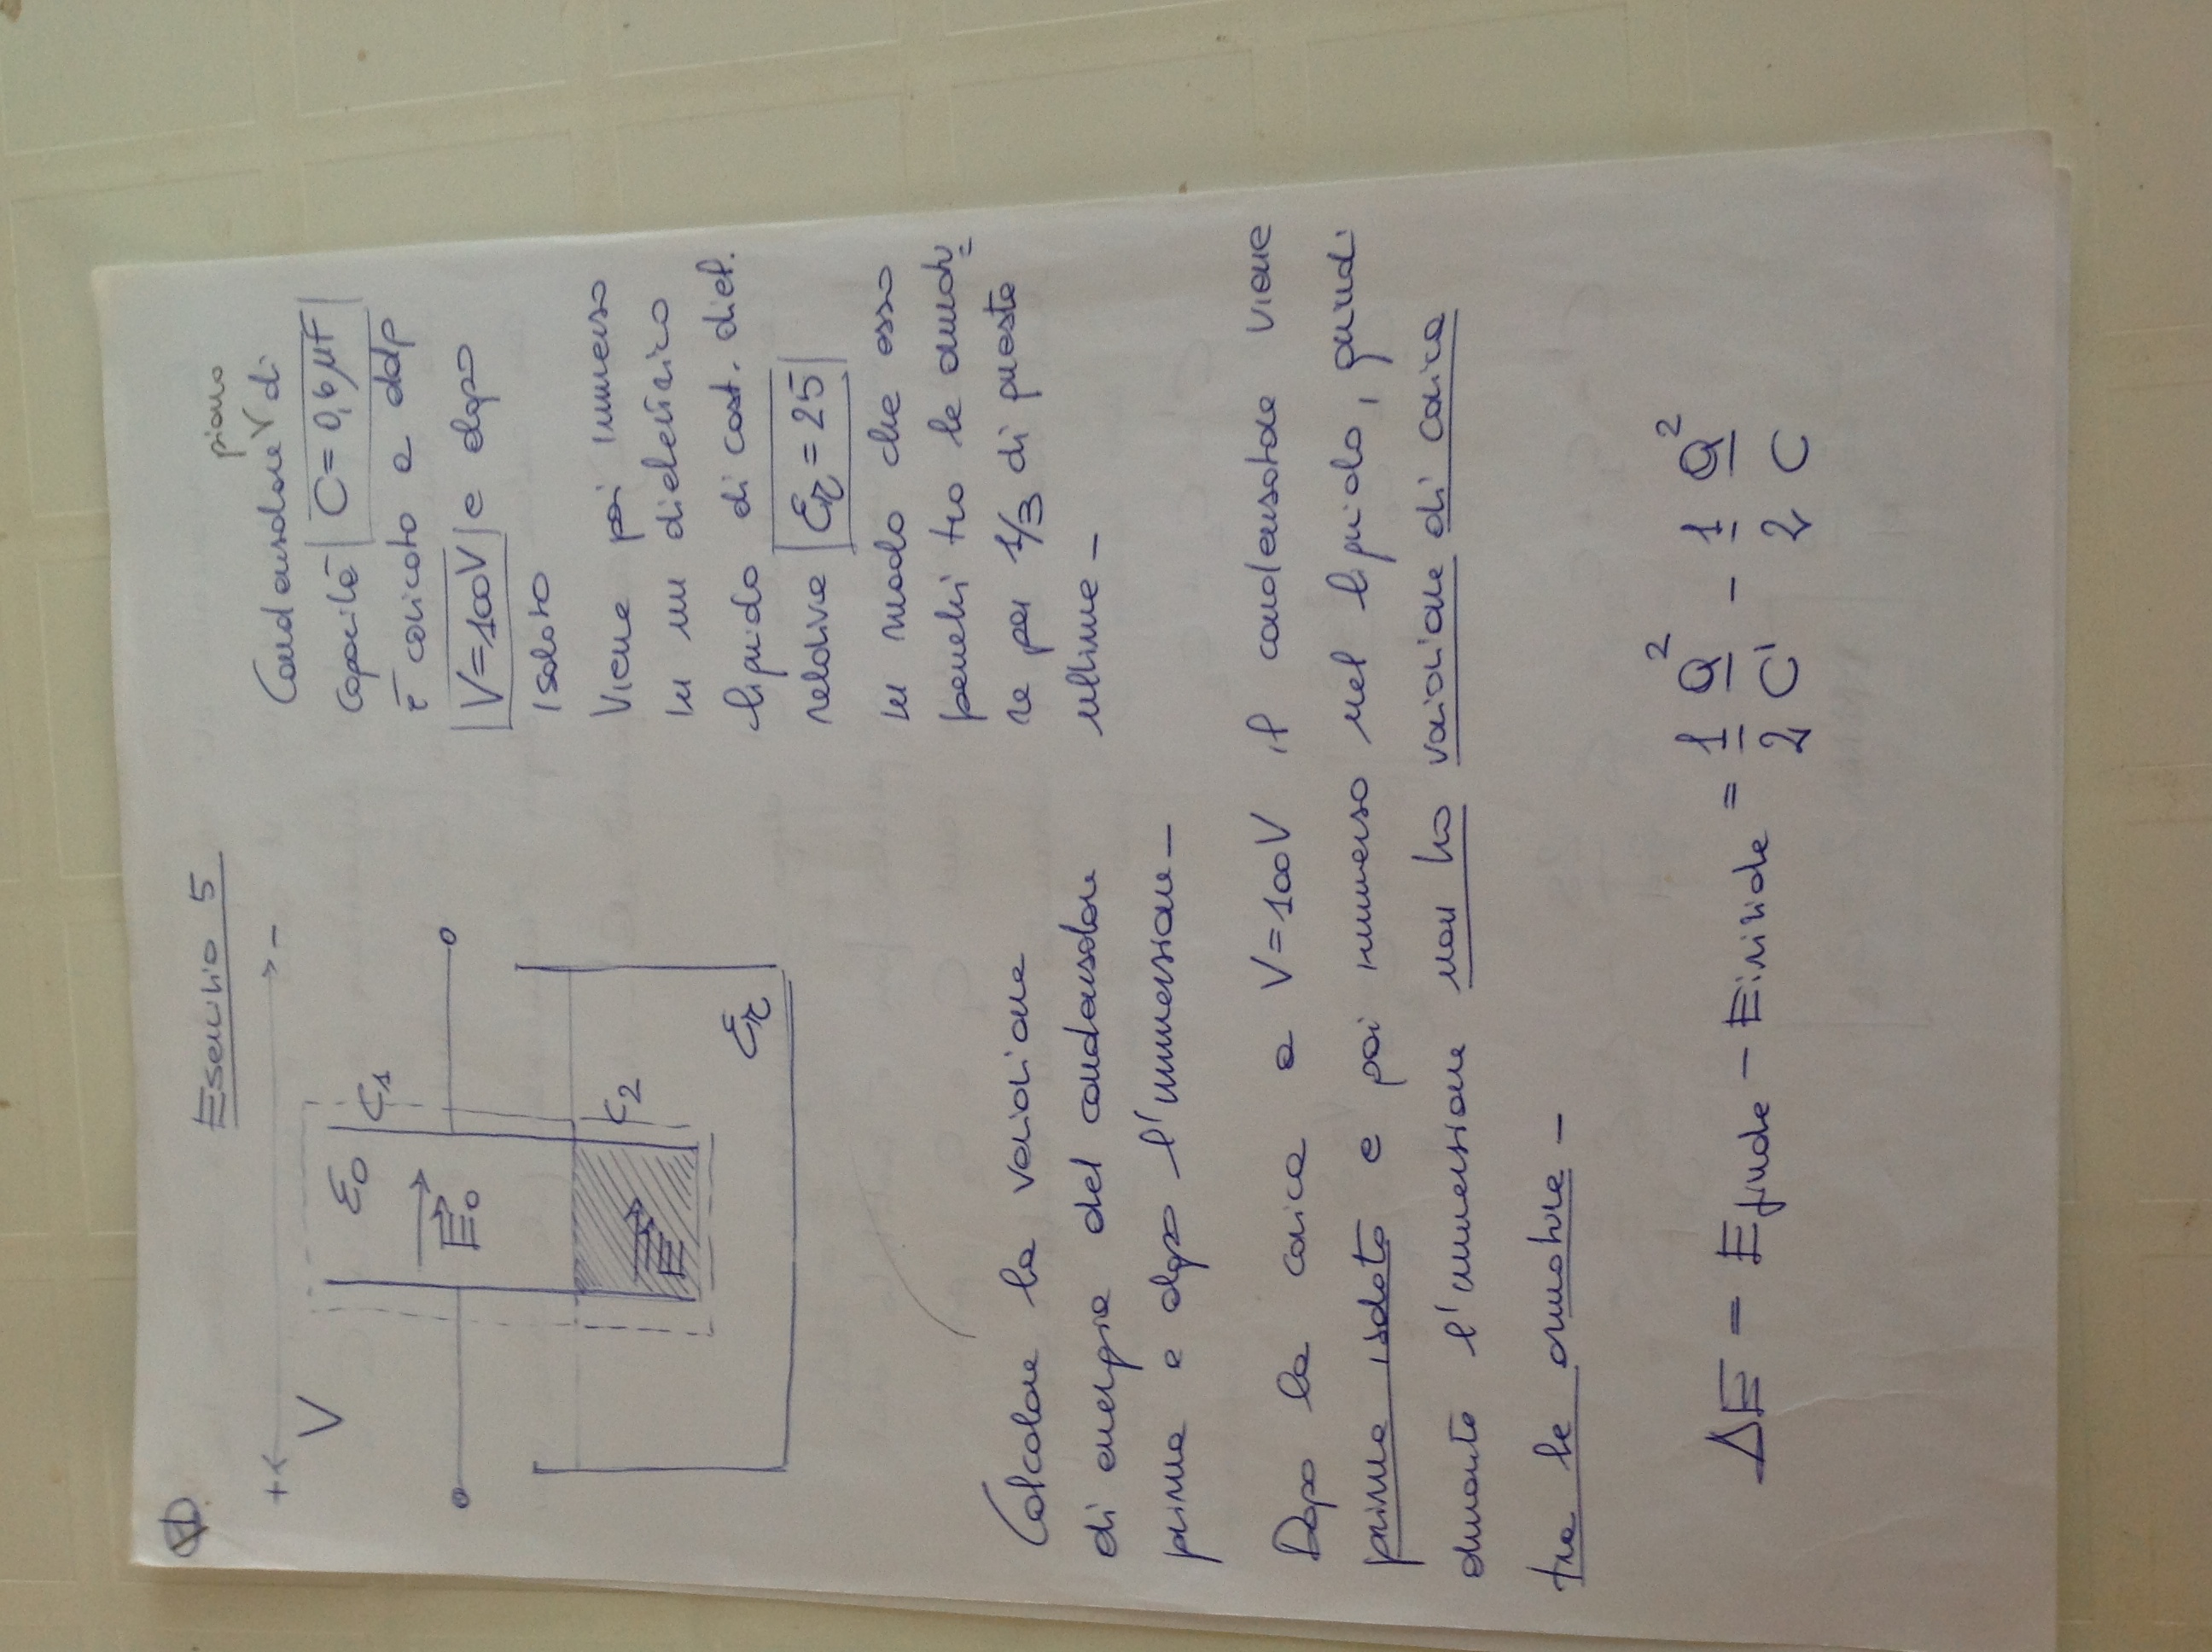 Esercizio 5
+ -
V
ε0
C1
E0
C2
E
εr
piano
Condensatore di
capacità C = 0,6 μF
è caricato a ddp
V=100V e dopo
isolato
Viene poi immerso
in un dielettrico
liquido di cost. diel.
relativa εr = 25
in modo che esso
penetri tra le armatu
re per 1/3 di queste
ultime -
Calcolare la variazione
di energia del condensatore
prima e dopo l'immersione -
Dopo la carica a V=100V il condensatore viene
prima isolato e poi immerso nel liquido, quindi
durante l'immersione non ho variazione di carica
tra le armature -
ΔE = Efinale - Einiziale = 1/2 Q²/C' - 1/2 Q²/C